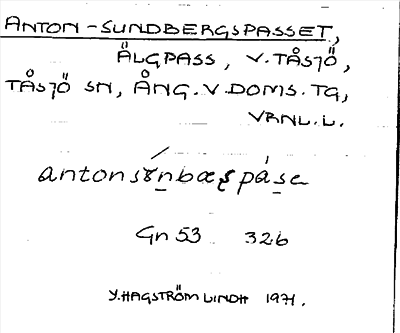 ANTON-SUNDBERGSPASSET,
ÄLGPASS, V. TÅSJÖ,
TÅSJÖ SN, ÅNG. V. DOMS. TG,
VRNL. L.
Gn 53 326
Y. HAGSTRÖM LINDH 1971.